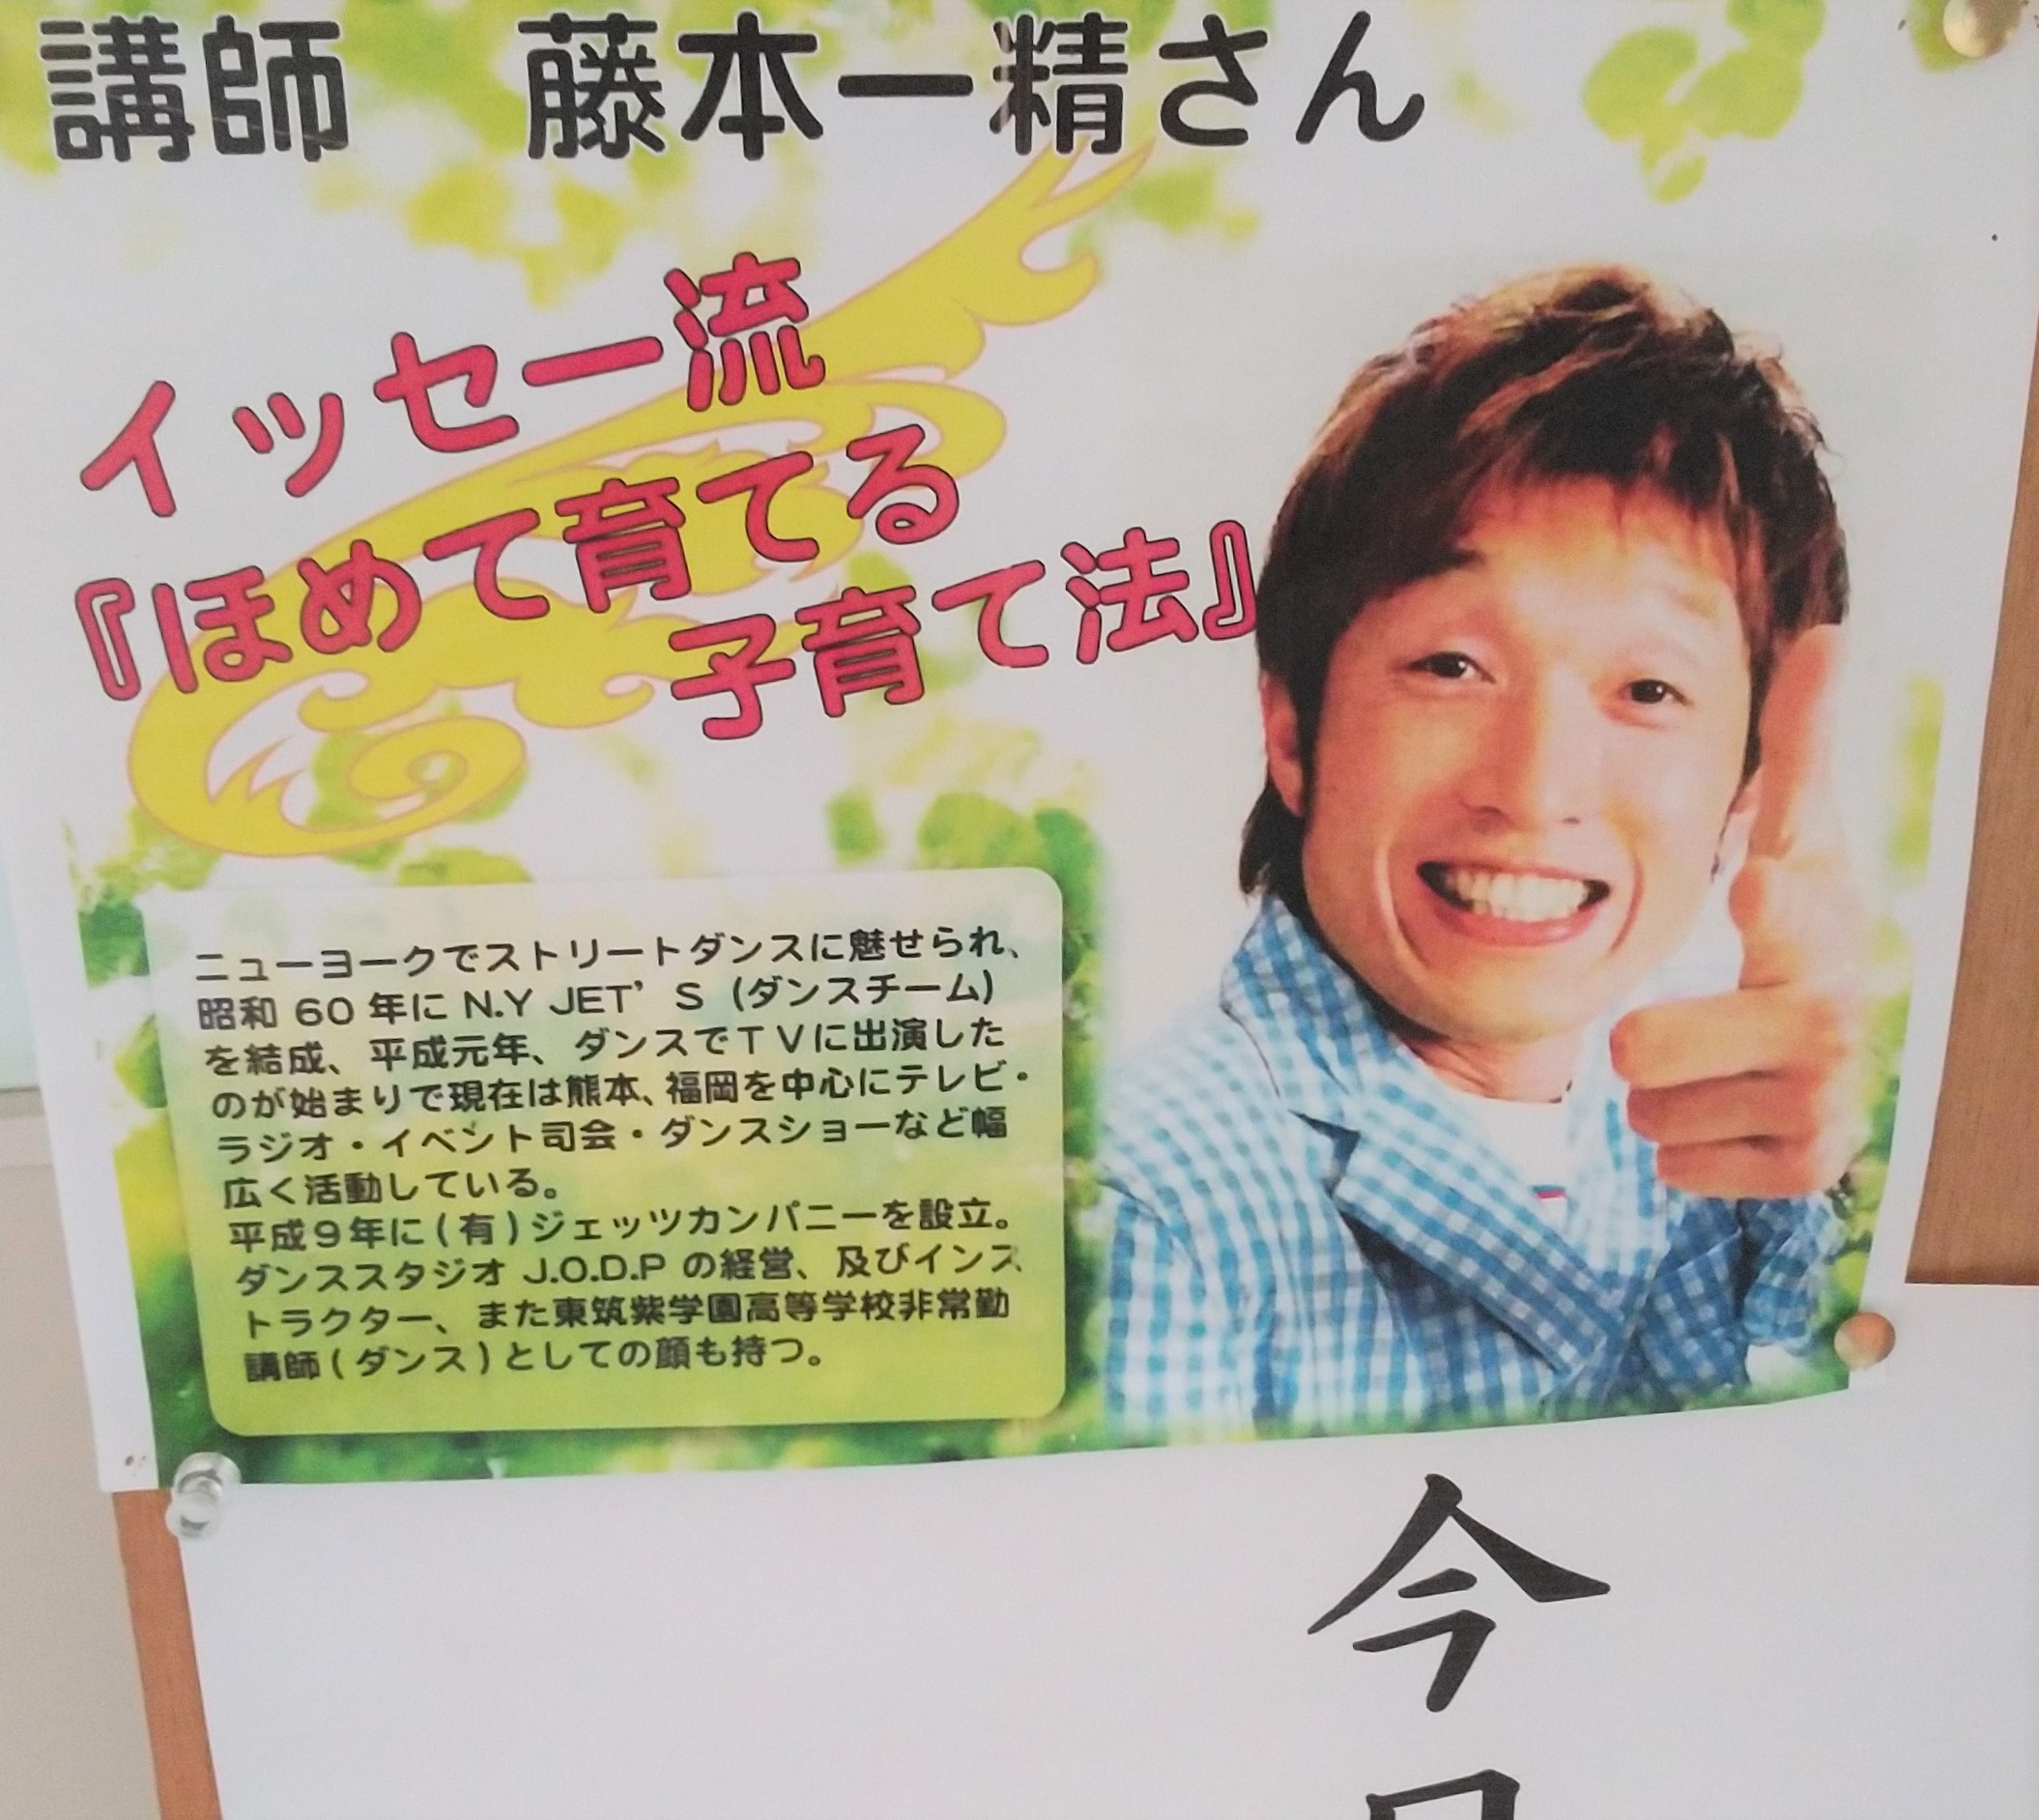 講師　藤本一精さん
イッセー流
『ほめて育てる
子育て法』
ニューヨークでストリートダンスに魅せられ、
昭和 60 年に N.Y JET’S（ダンスチーム）
を結成、平成元年、ダンスでTVに出演した
のが始まりで現在は熊本、福岡を中心にテレビ・
ラジオ・イベント司会・ダンスショーなど幅
広く活動している。
平成９年に(有)ジェッツカンパニーを設立。
ダンススタジオ J.O.D.P の経営、及びインス
トラクター、また東筑紫学園高等学校非常勤
講師(ダンス)としての顔も持つ。
今